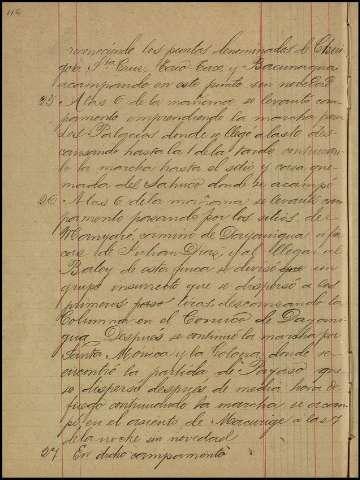 116
reconociendo los puntos denominados el
Sta Cruz, y Bacunagua
acampando en este punto sin novedad
25 A las 6 de la mañana se levantó cam-
pamento emprendiendo la marcha por
los Palacios donde se llegó a las de des-
cansando hasta la 1 de la tarde continuan-
do la marcha hasta el sitio y casa que-
mada del donde se acampó
26 A las 6 de la mañana se levantó cam-
pamento pasando por los sitios de
camino de Dayaniguas a fin-
ca de Julian Diaz, y al llegar al
Batey de esta finca se divisó un
grupo insurrecto que se dispersó a los
primeros tiros, descansando la
Columna en el Camino de Dayani-
gua. Después se continuó la marcha por
Santa Monica y la Colona, donde se
encontró la partida de Payaso que
se dispersó después de media hora de
fuego continuando la marcha, se acam-
pó, en el asiento de a las 7
de la noche sin novedad
27 En dicho campamento